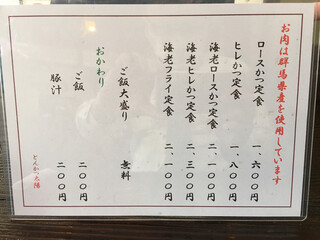 お肉は群馬県産を使用しています
ロースかつ定食 一、六〇〇円
ヒレかつ定食 一、八〇〇円
海老ロースかつ定食 二、一〇〇円
海老ヒレかつ定食 二、三〇〇円
海老フライ定食 二、一〇〇円
ご飯大盛り 無料
おかわり
ご飯 二〇〇円
豚汁 二〇〇円
とんかつ太陽